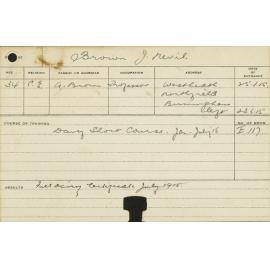 Brown J. Nevil
AGE RELIGION PARENT OR GUARDIAN OCCUPATION ADDRESS DATE OF ENTRANCE
34 C. of E. A. Brown Professor Westheath 25.1.15.
Northfield
Birmingham
23.6.15
COURSE OF TRAINING No. OF ROOM
Dairy Short Course. Jan-July 15 E 117.
RESULTS Dairy Certificate July 1915